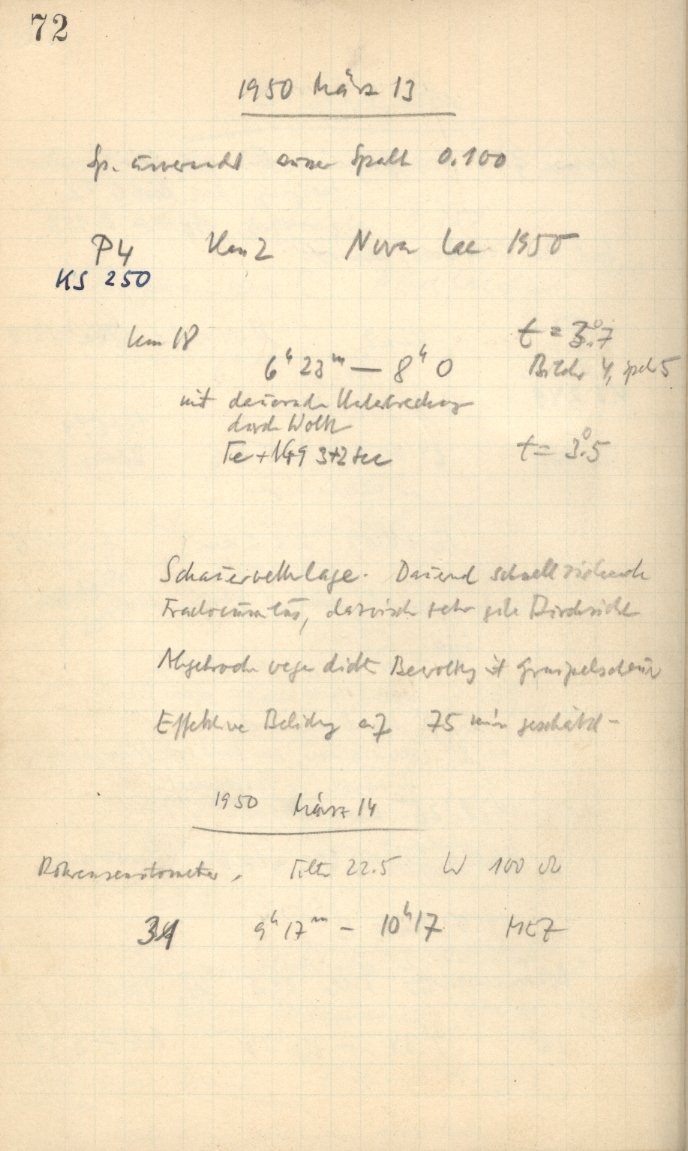 72
1950 März 13
Sp. unverändert Spalt 0.100
P4 Nova Lac 1950
KS 250
t = 3°.7
6ʰ 23ᵐ — 8ʰ 0 Bilder 4, später 5
mit dauernder Unterbrechung
durch Wolken
Fe + 3+2 sec t = 3°.5
Schauerwetterlage. Dauernd schnell ziehende
Fractocumulus, dazwischen sehr gute Durchsicht
Abgebrochen wegen dichter Bewölkung mit Graupelschauer
Effektive Belichtung auf 75 min geschätzt
1950 März 14
Röhrensensitometer. Filter 22.5 W 100 Ω
9ʰ 17ᵐ — 10ʰ 17 MEZ